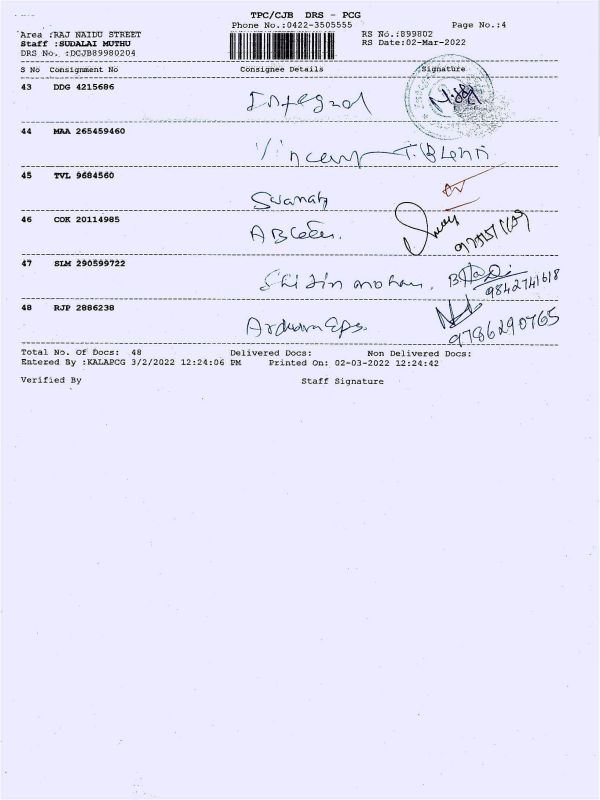 TPC/CJB DRS - PCG
Phone No.:0422-3505555 Page No.:4
Area :RAJ NAIDU STREET RS No.:899802
Staff :SUDALAI MUTHU RS Date:02-Mar-2022
DRS No. :DCJB89980204
S No Consignment No Consignee Details Signature
43 DDG 4215686 Integral
44 MAA 265459460 Vincent
45 TVL 9684560
46 COK 20114985
47 SLM 290599722 mohan. 9842741618
48 RJP 2886238 9786290765
Total No. Of Docs: 48 Delivered Docs: Non Delivered Docs:
Entered By :KALAPCG 3/2/2022 12:24:06 PM Printed On: 02-03-2022 12:24:42
Verified By Staff Signature